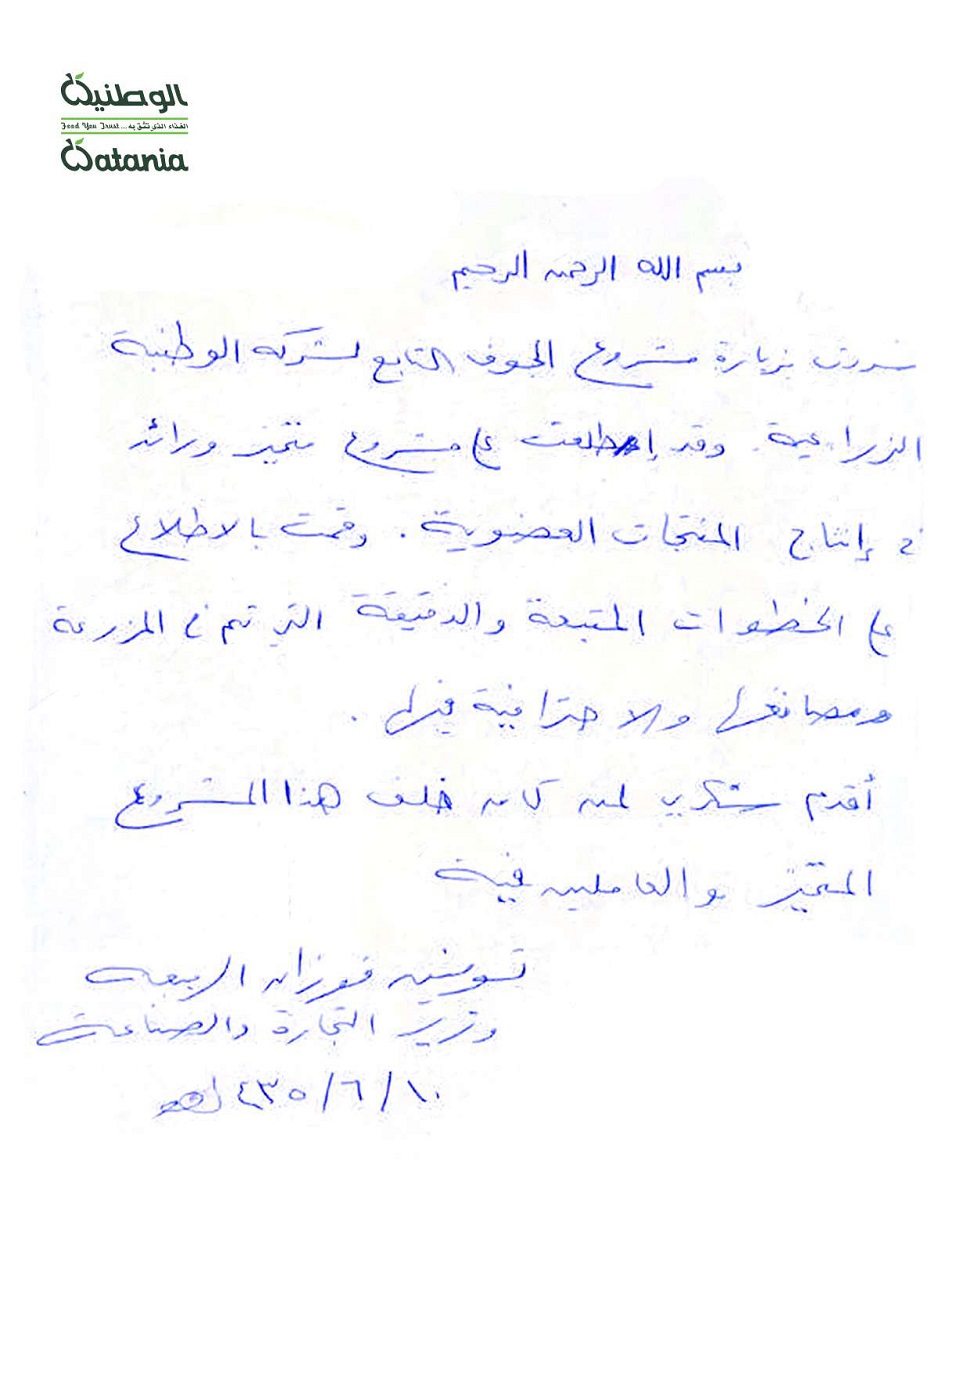 الوطنية
Food You Trust ... الغذاء الذي تثق به
Watania
بسم الله الرحمن الرحيم
سررت بزيارة مشروع الجوف التابع لشركة الوطنية
الزراعية. وقد إطلعت على مشروع متميز ورائد
في إنتاج المنتجات العضوية. وقمت بالاطلاع
على الخطوات المتبعة والدقيقة التي تتم في المزرعة
ومصانعها والاحترافية فيها.
أقدم شكري لمن كان خلف هذا المشروع
المتميز والعاملين فية
توفيق فوزان الربيعة
وزير التجارة والصناعة
١٠/٦/١٤٣٥هـ